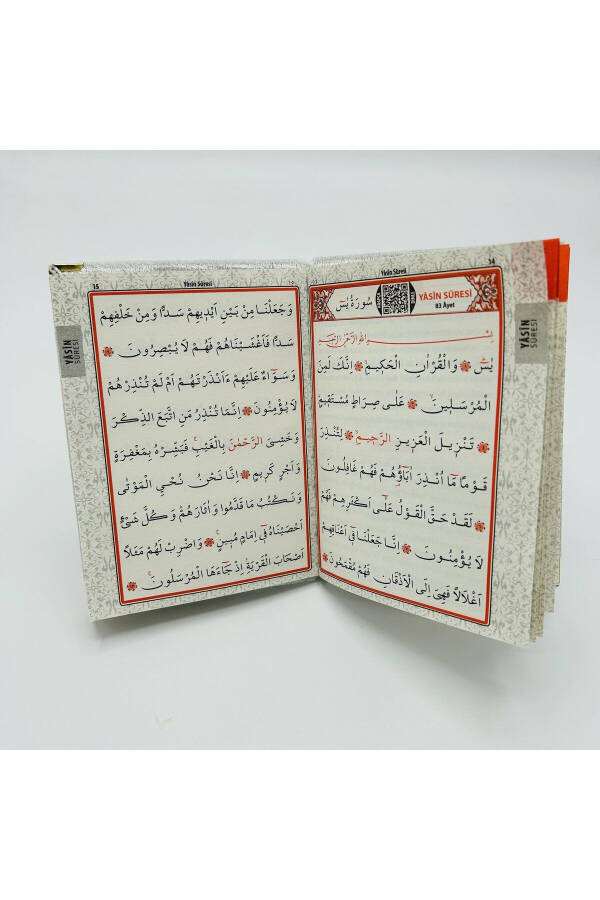 14
Yâsin Sûresi
YÂSİN SÛRESİ
83 Âyet
سُورَةُ يٰسٓ
بِسْمِ اللّٰهِ الرَّحْمٰنِ الرَّحِيمِ
يٰسٓ ۞ وَالْقُرْاٰنِ الْحَكِيمِۙ ۞ اِنَّكَ لَمِنَ
الْمُرْسَلِينَۙ ۞ عَلٰى صِرَاطٍ مُسْتَقِيمٍۜ
۞ تَنْزِيلَ الْعَزِيزِ الرَّحِيمِۙ ۞ لِتُنْذِرَ
قَوْمًا مَٓا اُنْذِرَ اٰبَٓاؤُ۬هُمْ فَهُمْ غَافِلُونَ
۞ لَقَدْ حَقَّ الْقَوْلُ عَلٰٓى اَكْثَرِهِمْ فَهُمْ
لَا يُؤْمِنُونَ ۞ اِنَّا جَعَلْنَا فِٓي اَعْنَاقِهِمْ
اَغْلَالًا فَهِيَ اِلَى الْاَذْقَانِ فَهُمْ مُقْمَحُونَ ۞
YÂSİN
SÛRESİ
15
Yâsin Sûresi
وَجَعَلْنَا مِنْ بَيْنِ اَيْدِيهِمْ سَدًّا وَمِنْ خَلْفِهِمْ
سَدًّا فَاَغْشَيْنَاهُمْ فَهُمْ لَا يُبْصِرُونَ ۞
وَسَوَٓاءٌ عَلَيْهِمْ ءَاَنْذَرْتَهُمْ اَمْ لَمْ تُنْذِرْهُمْ
لَا يُؤْمِنُونَ ۞ اِنَّمَا تُنْذِرُ مَنِ اتَّبَعَ الذِّكْرَ
وَخَشِيَ الرَّحْمٰنَ بِالْغَيْبِۚ فَبَشِّرْهُ بِمَغْفِرَةٍ
وَاَجْرٍ كَرِيمٍ ۞ اِنَّا نَحْنُ نُحْيِ الْمَوْتٰى
وَنَكْتُبُ مَا قَدَّمُوا وَاٰثَارَهُمْۜ وَكُلَّ شَيْءٍ
اَحْصَيْنَاهُ فِٓي اِمَامٍ مُبِينٍ۟ ۞ وَاضْرِبْ لَهُمْ مَثَلًا
اَصْحَابَ الْقَرْيَةِۢ اِذْ جَٓاءَهَا الْمُرْسَلُونَۚ ۞
YÂSİN
SÛRESİ